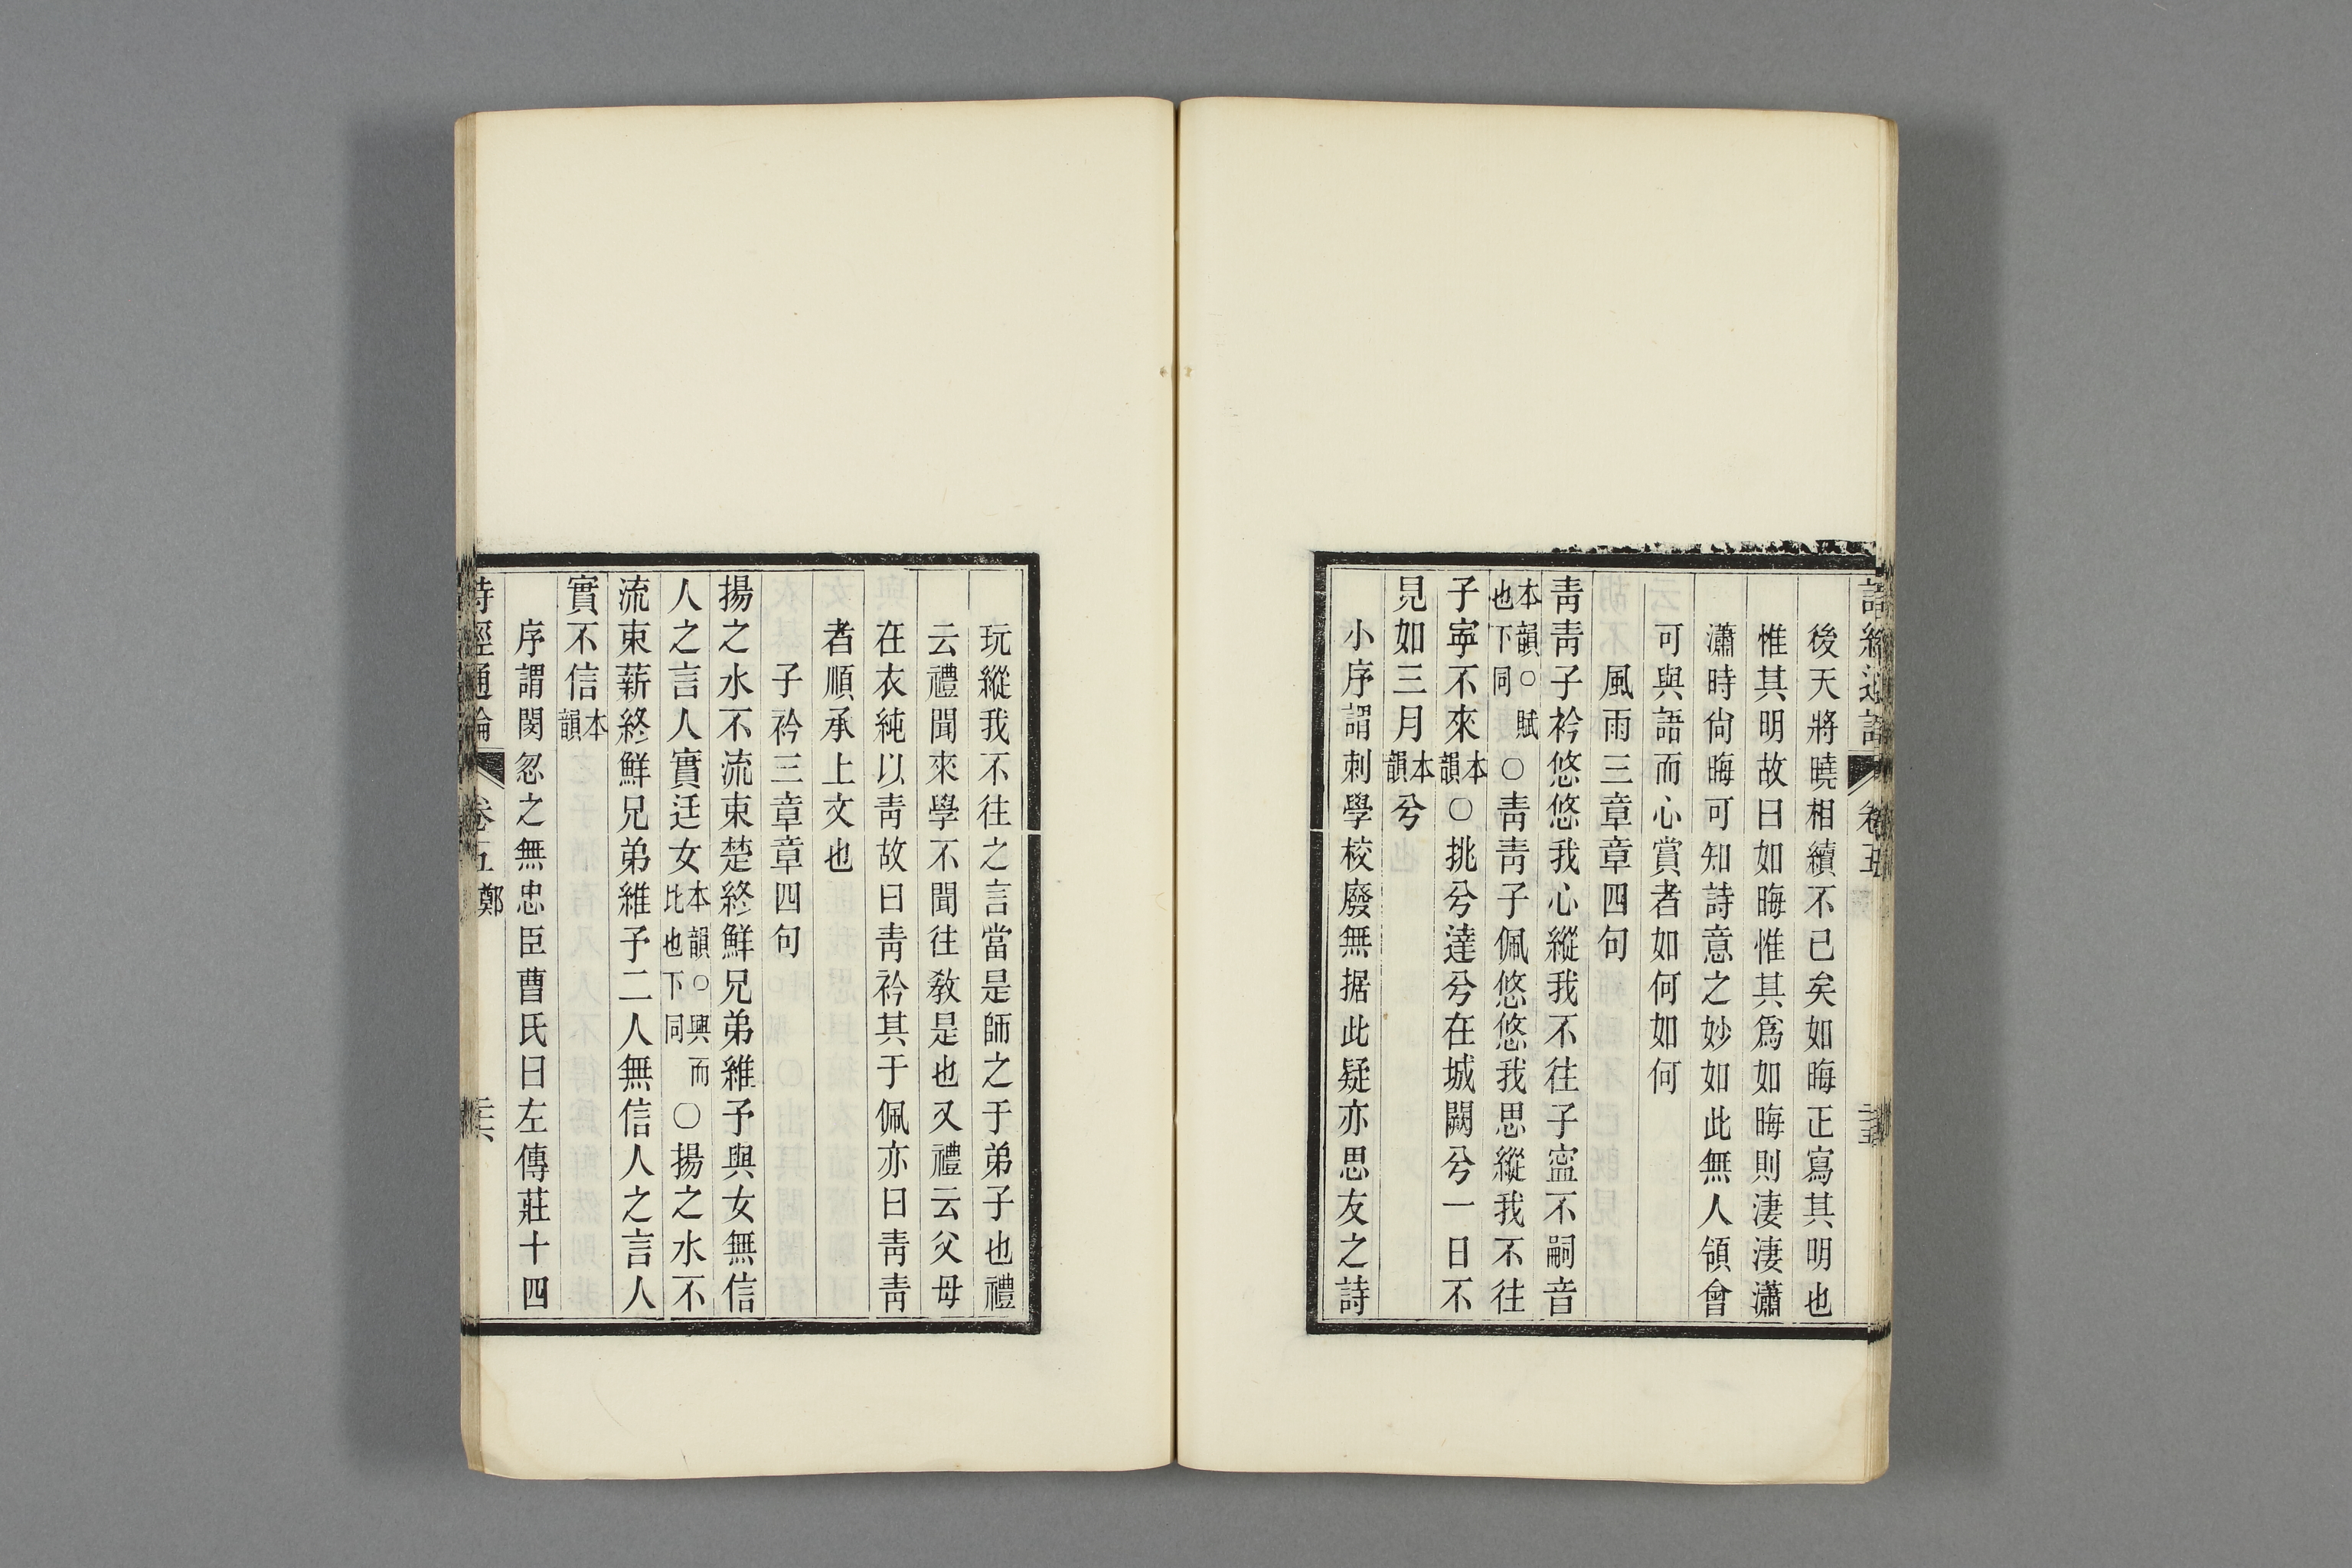 後天將曉相續不已矣如晦正寫其明也
惟其明故曰如晦惟其爲如晦則淒淒瀟
瀟時尙晦可知詩意之妙如此無人領會
可與語而心賞者如何如何
風雨三章章四句
靑靑子衿悠悠我心縱我不往子寍不嗣音
本韻○賦也下同○靑靑子佩悠悠我思縱我不往
子寧不來本韻○挑兮達兮在城闕兮一日不
見如三月本韻兮
小序謂刺學校廢無据此疑亦思友之詩
玩縱我不往之言當是師之于弟子也禮
云禮聞來學不聞往敎是也又禮云父母
在衣純以靑故曰靑衿其于佩亦曰靑靑
者順承上文也
子衿三章章四句
揚之水不流束楚終鮮兄弟維予與女無信
人之言人實迋女本韻○興而比也下同○揚之水不
流束薪終鮮兄弟維予二人無信人之言人
實不信本韻
序謂閔忽之無忠臣曹氏曰左傳莊十四
詩經通論 卷五 鄭